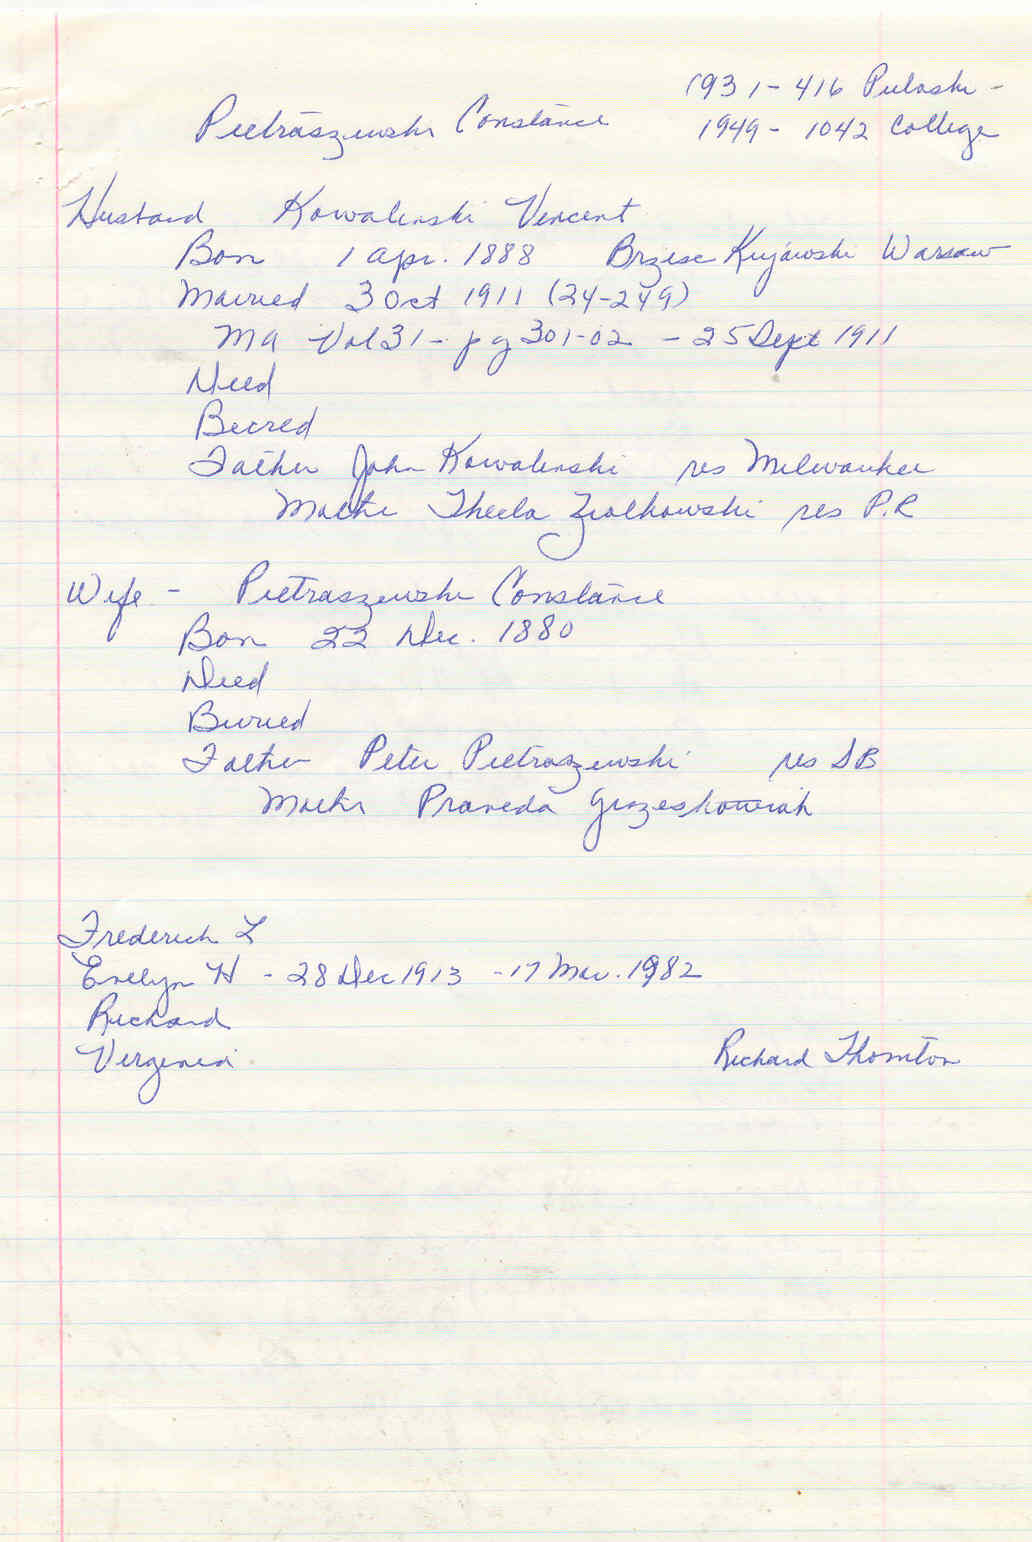 1931 - 416 Pulaski -
Pietraszewski Constance 1949 - 1042 College
Husband Kowalenski Vincent
Born 1 Apr. 1888 Brzesc Kujawski Warsaw
Married 3 Oct 1911 (24-249)
Ma Vol 31 - pg 301-02 - 25 Sept 1911
Died
Buried
Father John Kowalenski res Milwaukee
Mother Thecla Ziolkowski res P.R
Wife - Pietraszewski Constance
Born 22 Dec. 1880
Died
Buried
Father Peter Pietraszewski res SB
Mother Praxeda Grzeskowiak
Frederick L
Evelyn H - 28 Dec 1913 - 17 Mar. 1982
Richard
Virginia Richard Thornton